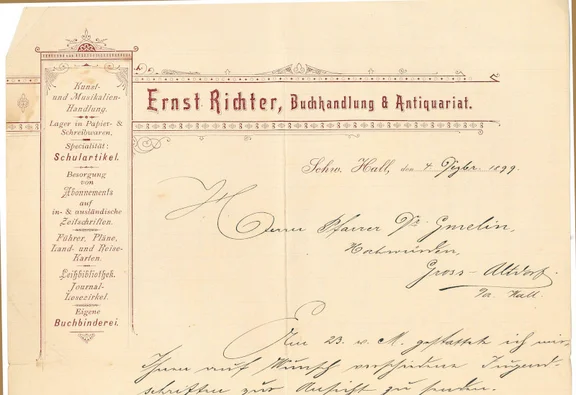 Kunst-
und Musikalien-
Handlung.
Lager in Papier- &
Schreibwaren.
Specialität:
Schulartikel.
Besorgung
von
Abonnements
auf
in- & ausländische
Zeitschriften.
Führer, Pläne,
Land- und Reise-
Karten.
Leihbibliothek.
Journal-
Lesezirkel.
Eigene
Buchbinderei.
Ernst Richter, Buchhandlung & Antiquariat.
Schw. Hall, den 4. Dezbr. 1899.
Herrn Pfarrer Dr. Gmelin,
Gross-Altdorf
Hall.
Am 23. v. M. gestattete ich mir
Ihnen auf Wunsch verschiedene Jugend-
schriften zur Ansicht zu senden.